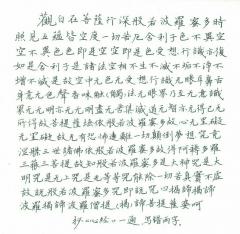 觀自在菩薩行深般若波羅蜜多時
照見五蘊皆空度一切苦厄舍利子色不異空
空不異色色即是空空即是色受想行識亦復
如是舍利子是諸法空相不生不滅不垢不淨不
增不減是故空中无色无受想行識无眼耳鼻舌
身意无色聲香味觸(觸)法无眼界乃至无意識
界无无明亦无无明盡无苦集滅道无智亦无得以无
所得故菩提薩埵依般若波羅蜜多故心无罣礙
无罣礙故无有恐怖遠離一切顛倒夢想究竟
涅槃三世諸佛依般若波羅蜜多故得阿耨多羅
三藐三菩提故知般若波羅蜜多是大神咒是大
明咒是无上咒是无等等咒能除一切苦真實不虛
故說般若波羅蜜多咒即說咒曰揭諦揭諦
波羅揭諦波羅僧揭諦菩提薩婆訶
抄心經一遍 寫錯兩字